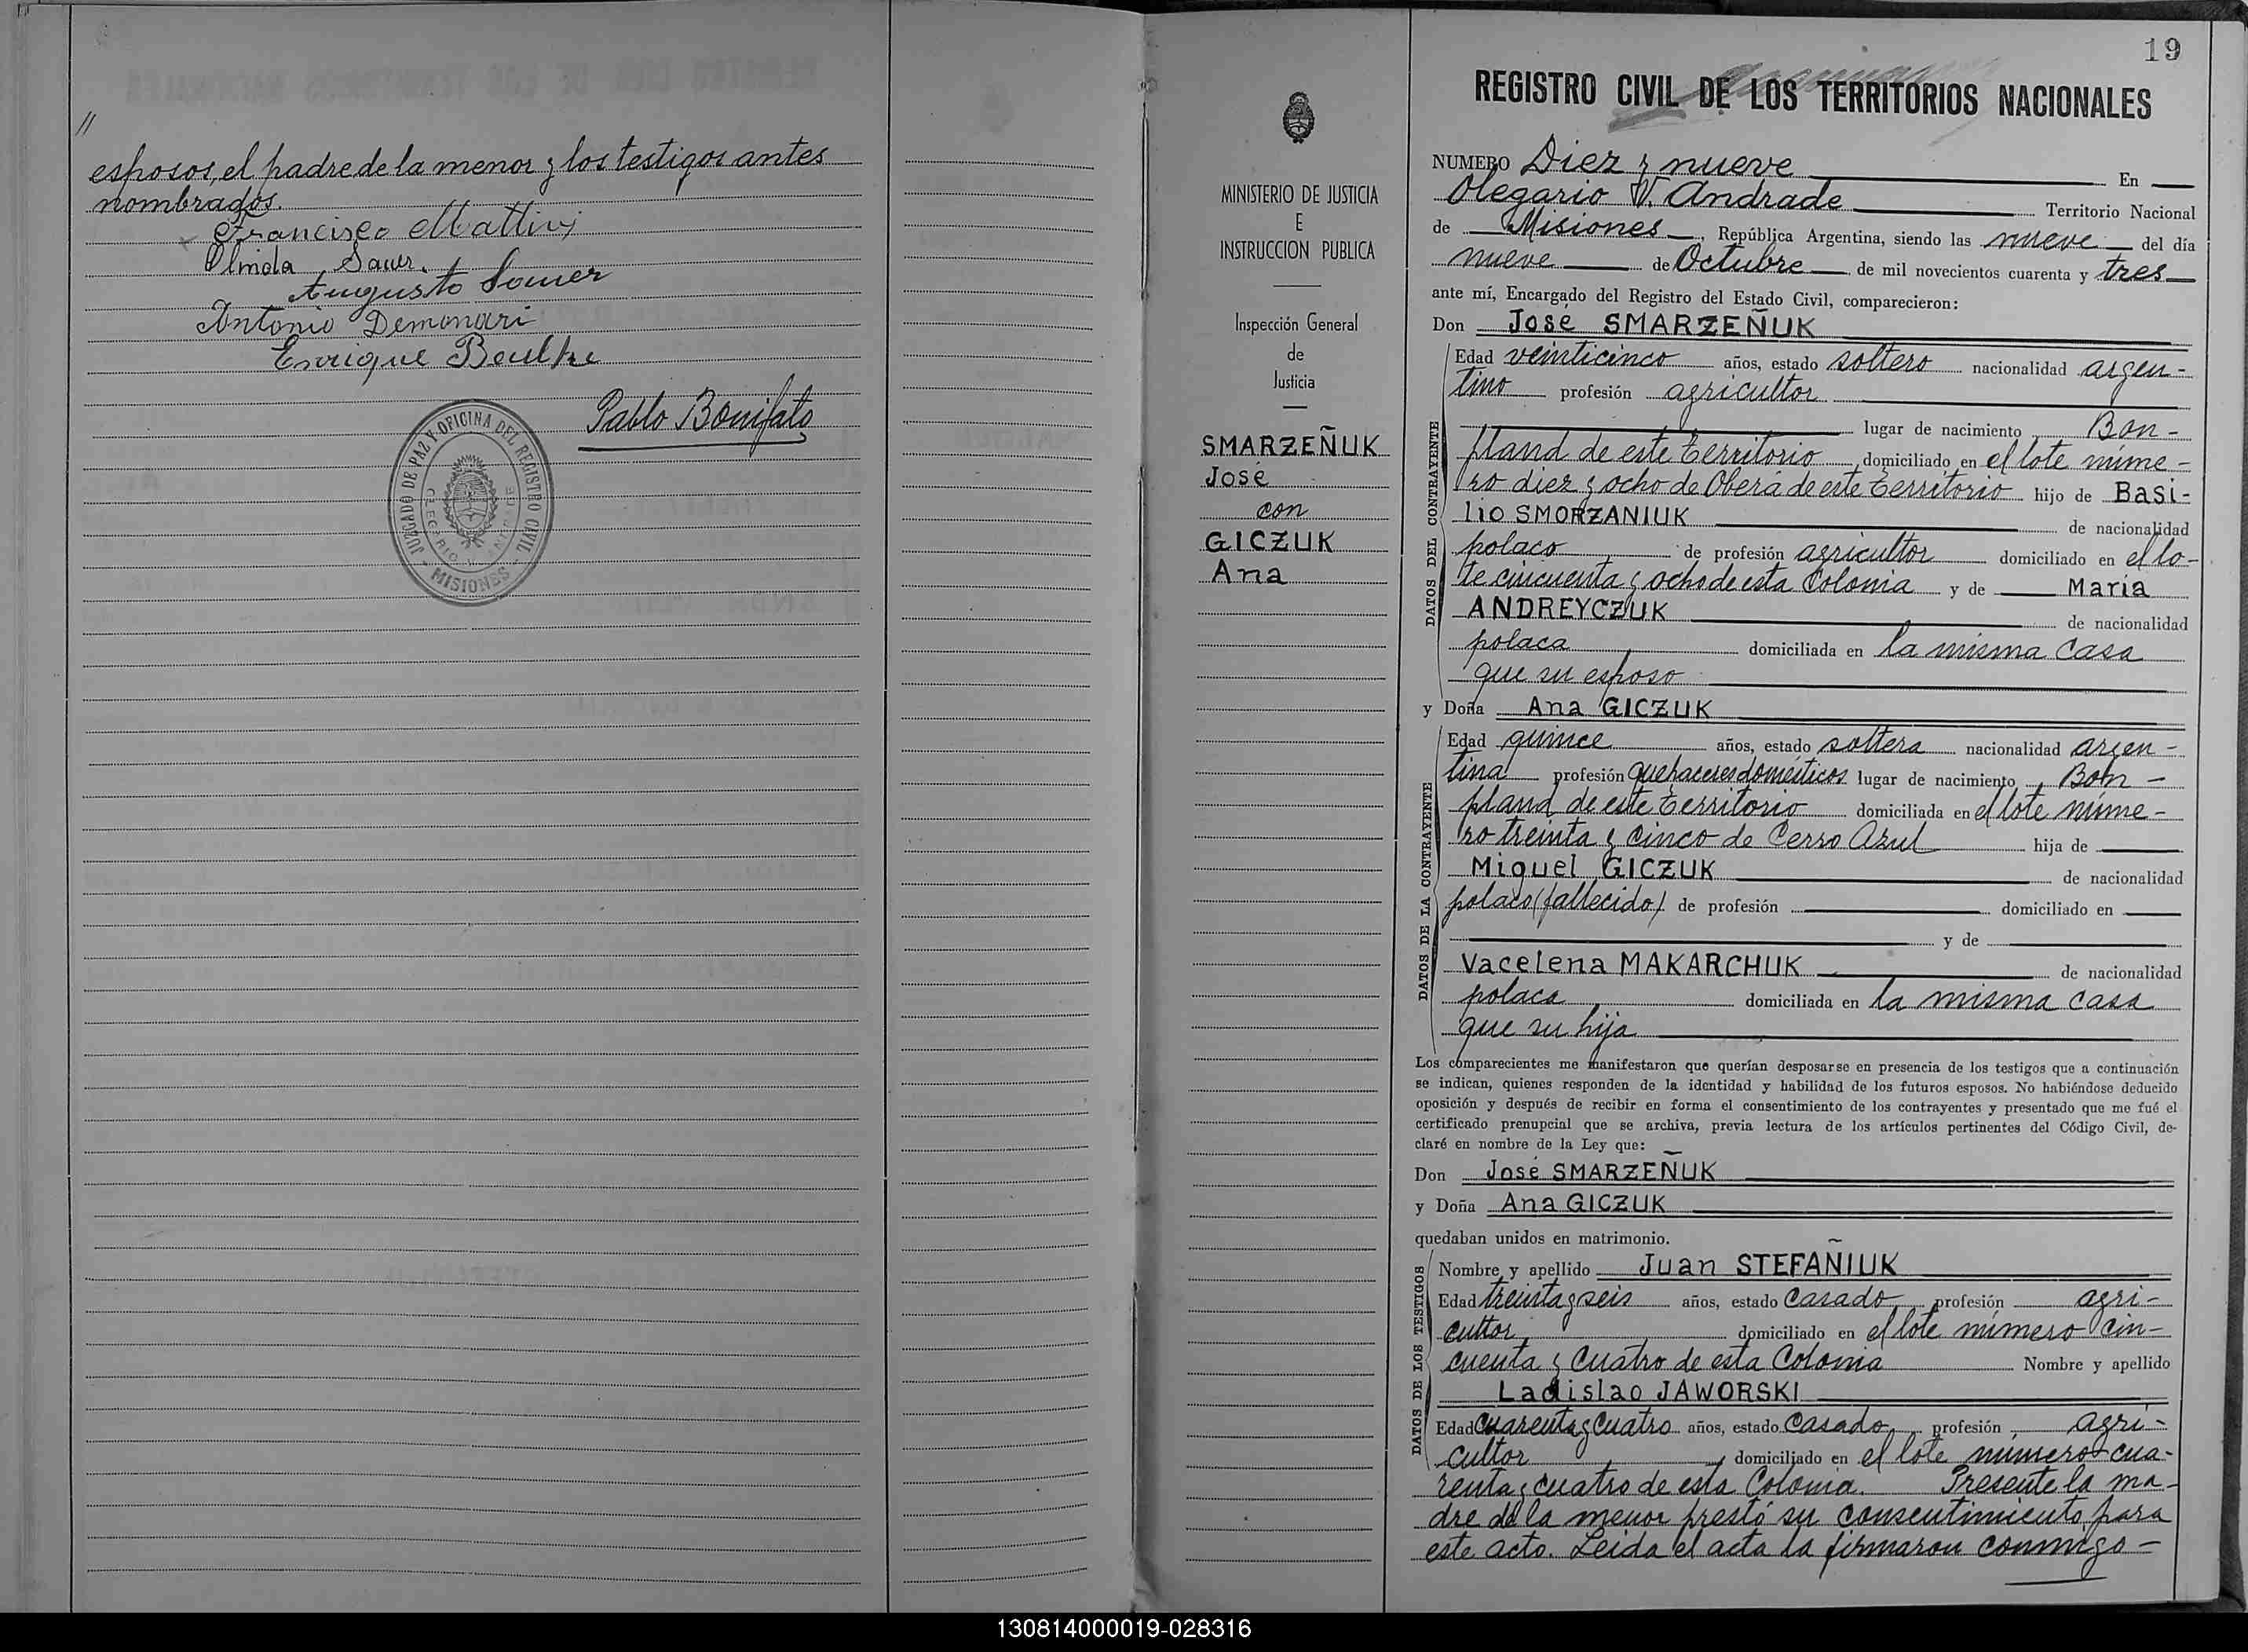 //
esposos, el padre de la menor y los testigos antes
nombrados.
Francisco Mattivi
Olinda Sauer.
Augusto Somer
Antonio Demonari
Enrique
Pablo Bonifato
JUZGADO DE PAZ Y OFICINA DEL REGISTRO CIVIL
- MISIONES -
MINISTERIO DE JUSTICIA
E
INSTRUCCION PUBLICA
Inspección General
de
Justicia
SMARZEÑUK
José
con
GICZUK
Ana
19
REGISTRO CIVIL DE LOS TERRITORIOS NACIONALES
NUMERO Diez y nueve En
Olegario V. Andrade Territorio Nacional
de Misiones, República Argentina, siendo las nueve del día
nueve de Octubre de mil novecientos cuarenta y tres
ante mí, Encargado del Registro del Estado Civil, comparecieron:
Don José SMARZEÑUK
DATOS DEL CONTRAYENTE
Edad veinticinco años, estado soltero nacionalidad argen-
tino profesión agricultor
lugar de nacimiento Bon-
pland de este territorio domiciliado en el lote núme-
ro diez y ocho de Oberá de este territorio hijo de Basi-
lio SMORZANIUK de nacionalidad
polaco de profesión agricultor domiciliado en el lo-
te cincuenta y ocho de esta Colonia y de María
ANDREYCZUK de nacionalidad
polaca domiciliada en la misma casa
que su esposo
y Doña Ana GICZUK
DATOS DE LA CONTRAYENTE
Edad quince años, estado soltera nacionalidad argen-
tina profesión quehaceres domésticos lugar de nacimiento Bon-
pland de este territorio domiciliada en el lote núme-
ro treinta y cinco de Cerro Azul hija de
Miguel GICZUK de nacionalidad
polaco (fallecido) de profesión domiciliado en
y de
Vacelena MAKARCHUK de nacionalidad
polaca domiciliada en la misma casa
que su hija
Los comparecientes me manifestaron que querían desposarse en presencia de los testigos que a continuación
se indican, quienes responden de la identidad y habilidad de los futuros esposos. No habiéndose deducido
oposición y después de recibir en forma el consentimiento de los contrayentes y presentado que me fué el
certificado prenupcial que se archiva, previa lectura de los artículos pertinentes del Código Civil, de-
claré en nombre de la Ley que:
Don José SMARZEÑUK
y Doña Ana GICZUK
quedaban unidos en matrimonio.
DATOS DE LOS TESTIGOS
Nombre y apellido Juan STEFAÑIUK
Edad treinta y seis años, estado casado profesión agri-
cultor domiciliado en el lote número cin-
cuenta y cuatro de esta Colonia Nombre y apellido
Ladislao JAWORSKI
Edad cuarenta y cuatro años, estado casado profesión agri-
cultor domiciliado en el lote número cua-
renta y cuatro de esta Colonia. Presente la ma-
dre de la menor prestó su consentimiento para
este acto. Leida el acta la firmaron conmigo-
130814000019-028316